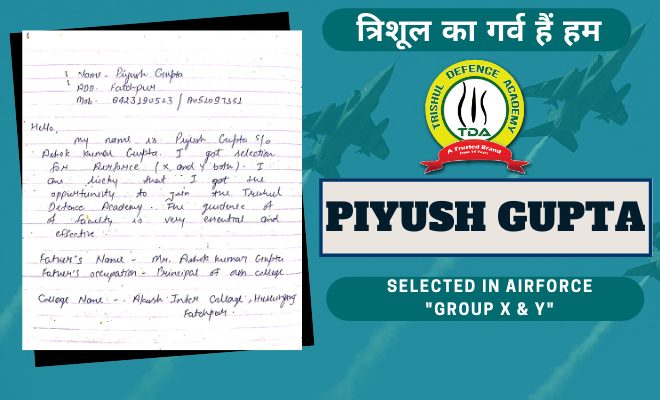 Name - Piyush Gupta
ADD - Fatehpur
Mob -
Hello,
My name is Piyush Gupta S/o
Ashok Kumar Gupta. I got selection
for Airforce (X and Y both). I
am lucky that I got the
oppurtunity to join the Trishul
Defence Academy. The guidence of
faculty is very essential and
effective
Father's Name - Mr. Ashok Kumar Gupta
Father's occupation - Principal of own college
College Name - Akash Inter College,
Fatehpur.
त्रिशूल का गर्व हैं हम
TRISHUL DEFENCE ACADEMY
TDA
A Trusted Brand
PIYUSH GUPTA
SELECTED IN AIRFORCE
"GROUP X & Y"